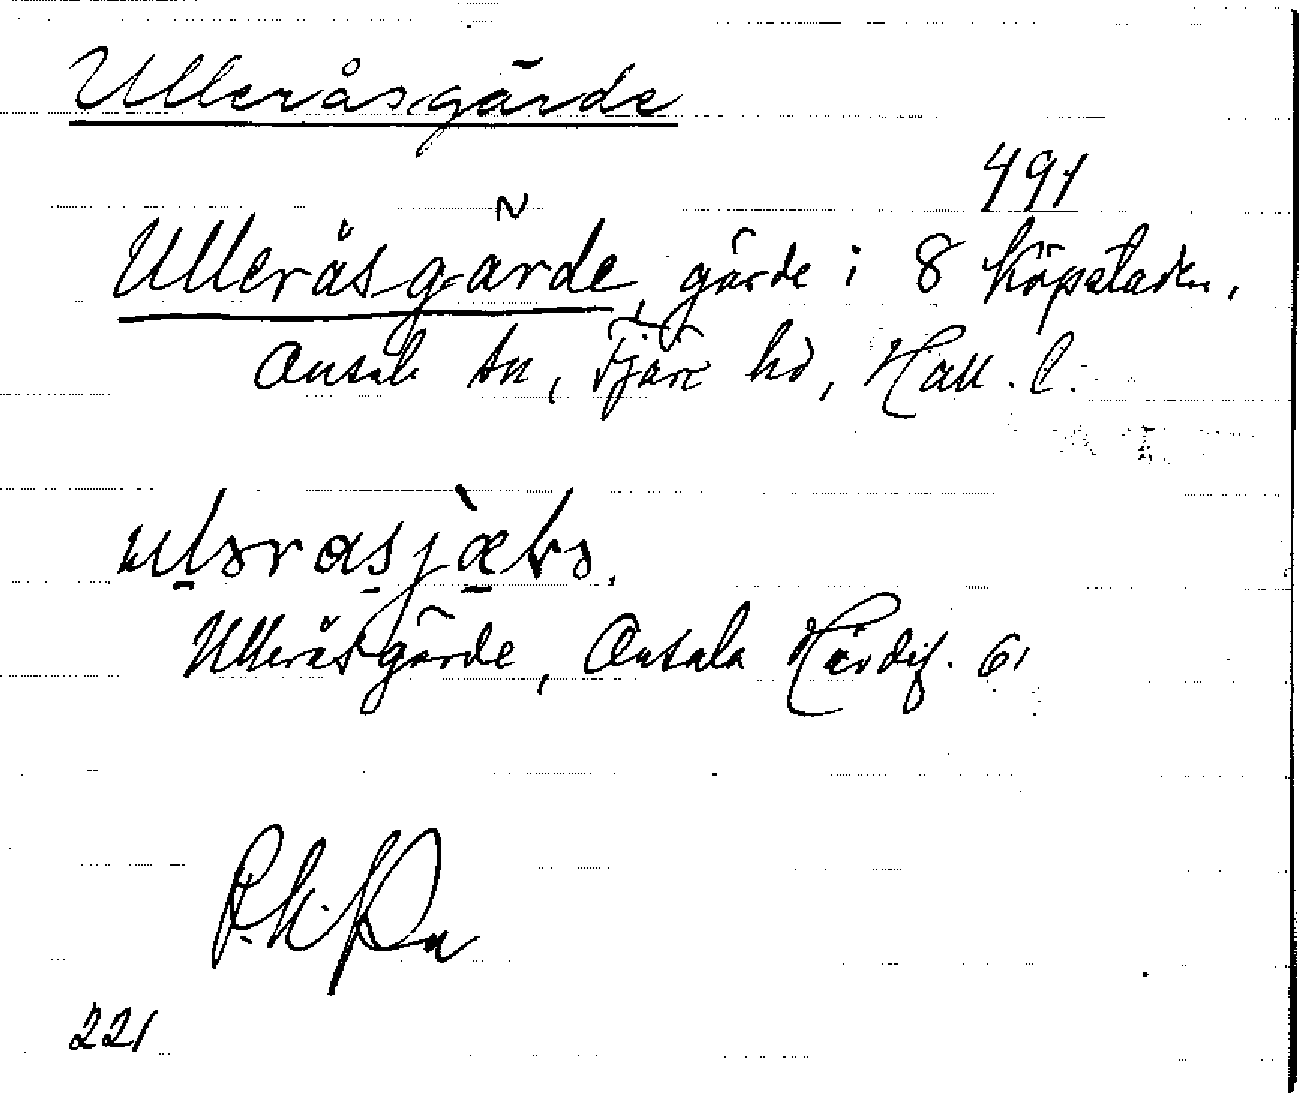 Ulleråsgärde
491
Ulleråsgärde, gärde i 8 Köpstaden,
Onsala sn, Fjäre hd, Hall. l.
Ulleråsgärde, Onsala Härdif. 61
221